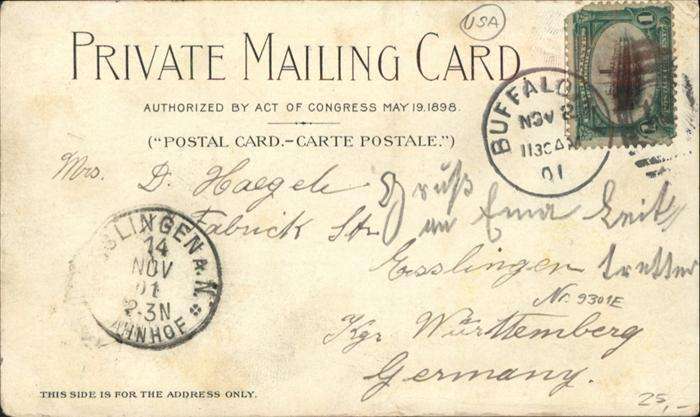 USA
PRIVATE MAILING CARD
AUTHORIZED BY ACT OF CONGRESS MAY 19, 1898.
("POSTAL CARD.–CARTE POSTALE.")
BUFFALO
NOV
1130AM
01
1 1
Mrs. D. Haegele
Gruß
Fabrick Str
an Erna
Esslingen
Nr. 9301E
Kgr Württemberg
Germany.
SLINGEN A.N.
14
NOV
01
2-3N
AHNHOF
THIS SIDE IS FOR THE ADDRESS ONLY.
25,-